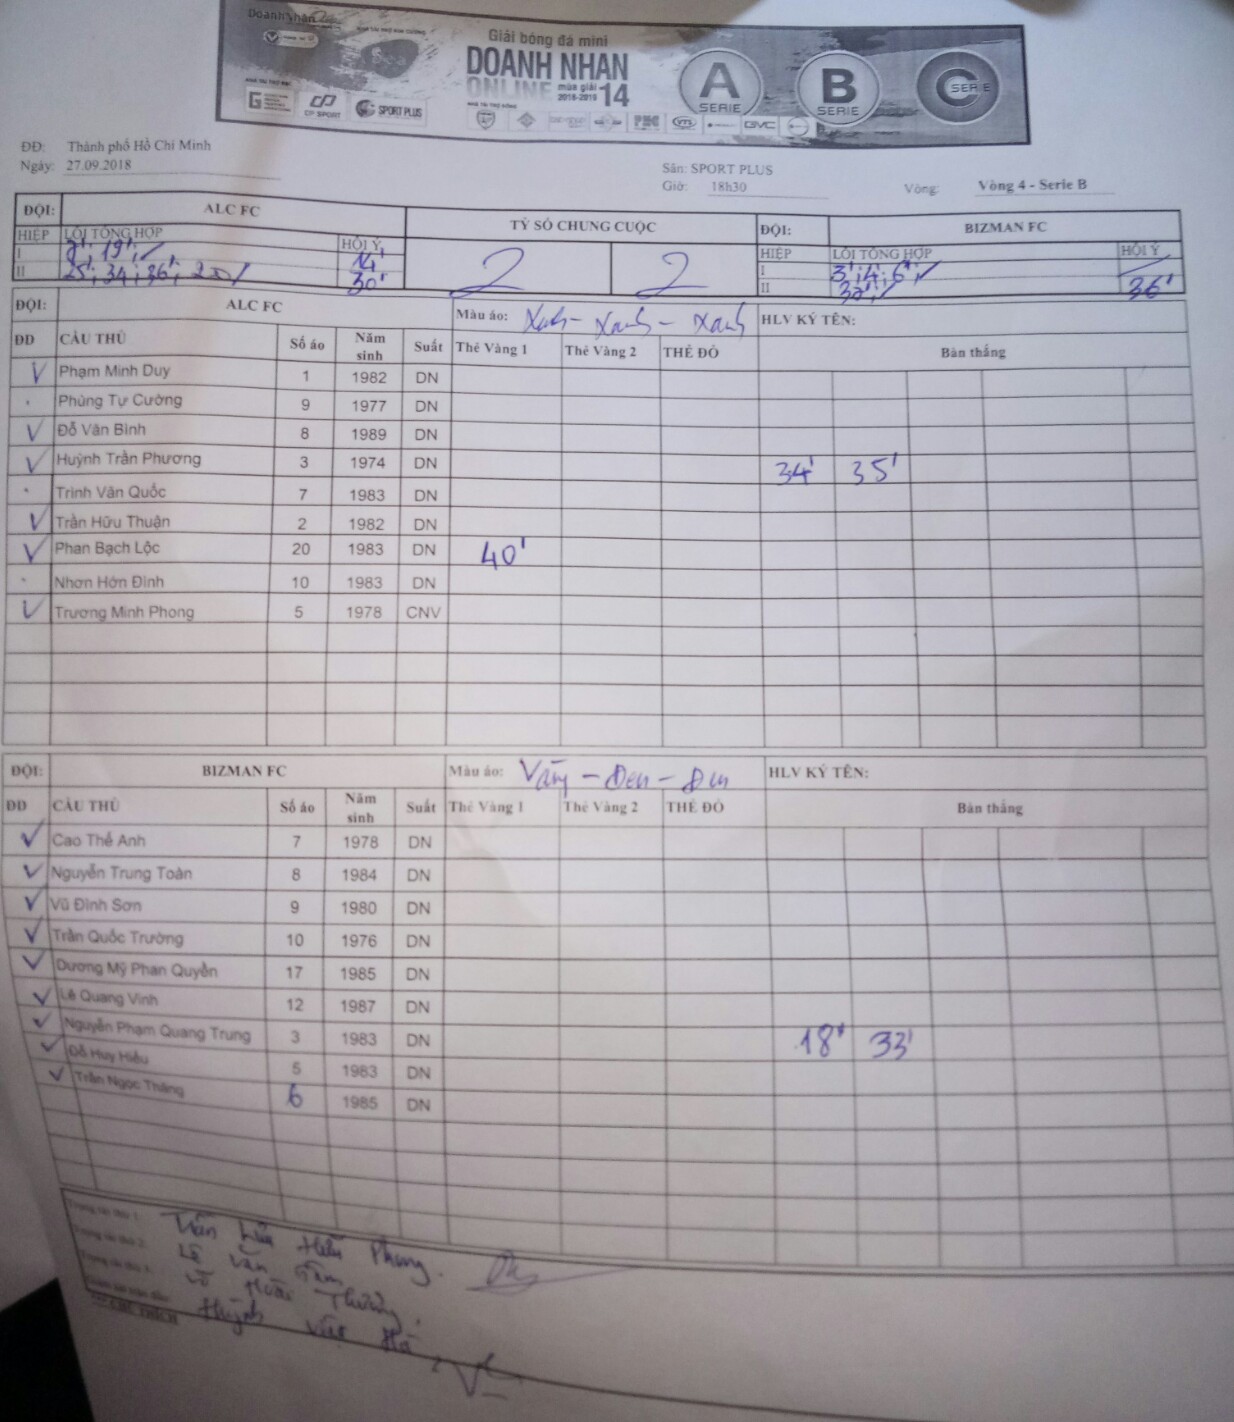 DoanhNhân
Giải bóng đá mini
DOANH NHÂN
ONLINE mùa giải 2018-2019 14
A SERIE
B SERIE
C SERIE
CP SPORT
SPORT PLUS
PMC
VTS
GVC
ĐĐ: Thành phố Hồ Chí Minh
Ngày: 27.09.2018
Sân: SPORT PLUS
Giờ: 18h30
Vòng: Vòng 4 - Serie B
ĐỘI: ALC FC TỶ SỐ CHUNG CUỘC ĐỘI: BIZMAN FC
HIỆP LỖI TỔNG HỢP HỘI Ý 2 2 HIỆP LỖI TỔNG HỢP HỘI Ý
I 19' 14' I 3'; 4'; 6'
II 25'; 34'; 36' 30' II 36'
ĐỘI: ALC FC Màu áo: Xanh - Xanh - Xanh HLV KÝ TÊN:
ĐD CẦU THỦ Số áo Năm sinh Suất Thẻ Vàng 1 Thẻ Vàng 2 THẺ ĐỎ Bàn thắng
Phạm Minh Duy 1 1982 DN
Phùng Tự Cường 9 1977 DN
Đỗ Văn Bình 8 1989 DN
Huỳnh Trần Phương 3 1974 DN 34' 35'
Trịnh Văn Quốc 7 1983 DN
Trần Hữu Thuận 2 1982 DN
Phan Bạch Lộc 20 1983 DN 40'
Nhơn Hớn Đình 10 1983 DN
Trương Minh Phong 5 1978 CNV
ĐỘI: BIZMAN FC Màu áo: Vàng - Đen - Đen HLV KÝ TÊN:
ĐD CẦU THỦ Số áo Năm sinh Suất Thẻ Vàng 1 Thẻ Vàng 2 THẺ ĐỎ Bàn thắng
Cao Thế Anh 7 1978 DN
Nguyễn Trung Toàn 8 1984 DN
Vũ Đình Sơn 9 1980 DN
Trần Quốc Trường 10 1976 DN
Dương Mỹ Phan Quyền 17 1985 DN
Lê Quang Vinh 12 1987 DN
Nguyễn Phạm Quang Trung 3 1983 DN 18' 33'
Đỗ Huy Hiếu 5 1983 DN
Trần Ngọc Thăng 6 1985 DN
Trọng tài thứ 1: Trần Hữu Phung
Trọng tài thứ 2: Lê Văn Tâm
Trọng tài thứ 3: Võ Hoài Thương
Huỳnh Văn Hà